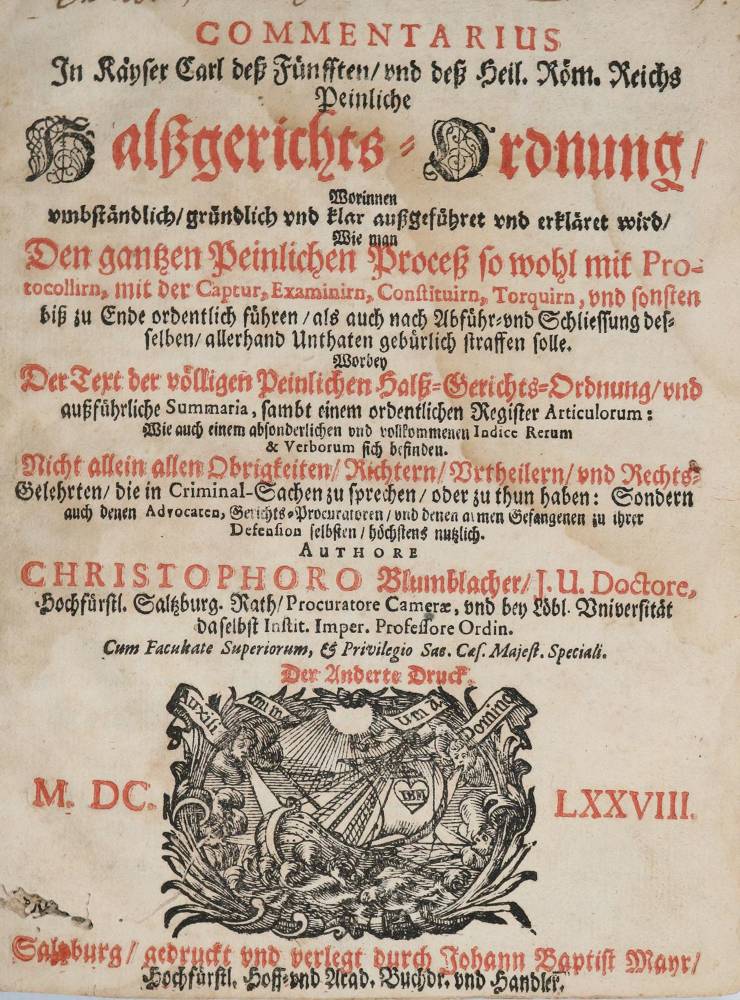 COMMENTARIUS
In Käyser Carl deß Fünfften/ vnd deß Heil. Röm. Reichs
Peinliche
Halßgerichts-Ordnung/
Worinnen
vmbständlich/ gründlich vnd klar außgeführet vnd erkläret wird/
Wie man
Den gantzen Peinlichen Proceß so wohl mit Pro-
tocollirn, mit der Captur, Examinirn, Constituirn, Torquirn, vnd sonsten
biß zu Ende ordentlich führen/ als auch nach Abführ- vnd Schliessung des-
selben/ allerhand Unthaten gebürlich straffen solle.
Worbey
Der Text der völligen Peinlichen Halß-Gerichts-Ordnung/ vnd
außführliche Summaria, sambt einem ordentlichen Register Articulorum:
Wie auch einem absonderlichen vnd vollkommenen Indice Rerum
& Verborum sich befinden.
Nicht allein allen Obrigkeiten/ Richtern/ Vrtheilern/ vnd Rechts-
Gelehrten/ die in Criminal-Sachen zu sprechen/ oder zu thun haben: Sondern
auch denen Advocaten, Gerichts-Procuratoren/ vnd denen armen Gefangenen zu ihrer
Defension selbsten/ höchstens nutzlich.
AUTHORE
CHRISTOPHORO Blumblacher/ J. U. Doctore,
Hochfürstl. Saltzburg. Rath/ Procuratore Cameræ, vnd bey Löbl. Vniversität
daselbst Instit. Imper. Professore Ordin.
Cum Facultate Superiorum, & Privilegio Sac. Cæs. Majest. Speciali.
Der Anderte Druck.
Auxilium Unde Domino
IHS
M. DC. LXXVIII.
Saltzburg/ gedruckt vnd verlegt durch Johann Baptist Mayr/
Hochfürstl. Hoff- vnd Acad. Buchdr. vnd Handler.